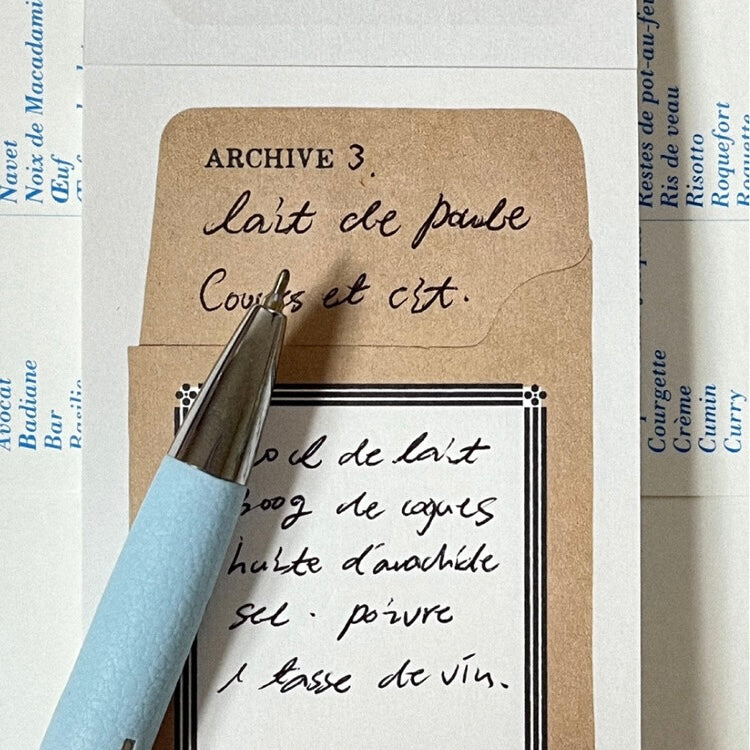 ARCHIVE 3.
lait de poule
et cit.
cl de lait
g de coques
huile d'arachide
sel . poivre
1 tasse de vin.
Navet
Noix de Macadami
Œuf
Avocat
Badiane
Bar
Basilic
Restes de pot-au-feu
Ris de veau
Risotto
Roquefort
Courgette
Crème
Cumin
Curry